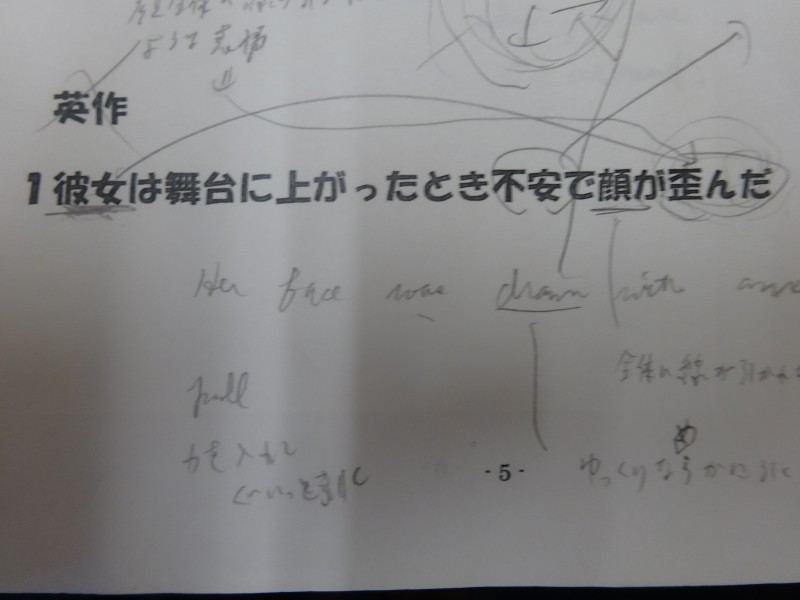 ような意味
英作
1 彼女は舞台に上がったとき不安で顔が歪んだ
Her face was drawn with
全体に線が引かれ
pull
力を入れて
ぐいっと引く
ゆっくりなめらかに引く
- 5 -